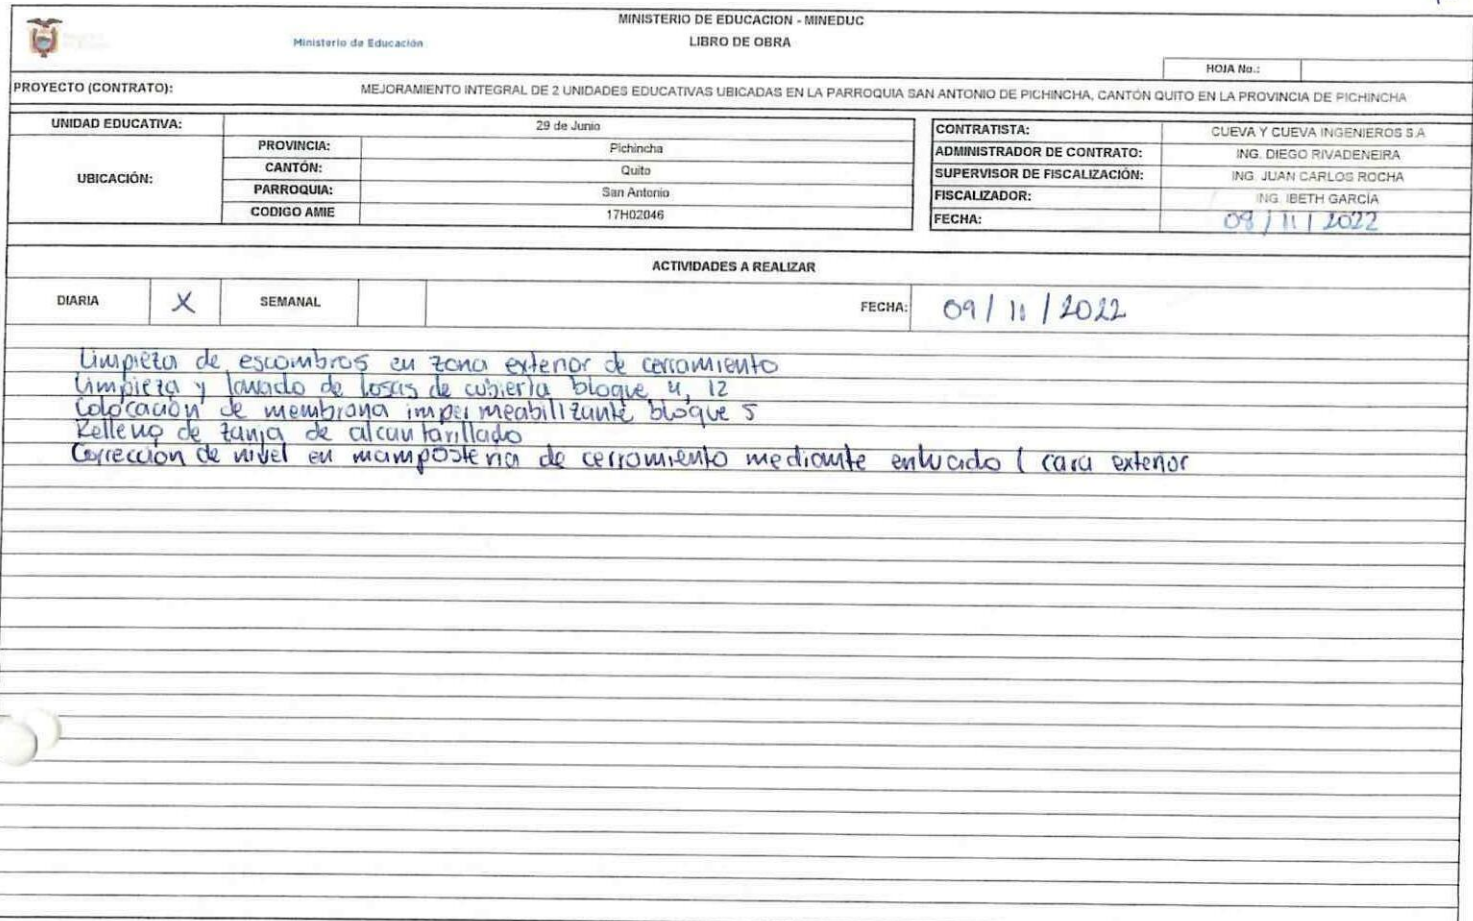 MINISTERIO DE EDUCACION - MINEDUC
Ministerio de Educación
LIBRO DE OBRA
HOJA No.:
PROYECTO (CONTRATO): MEJORAMIENTO INTEGRAL DE 2 UNIDADES EDUCATIVAS UBICADAS EN LA PARROQUIA SAN ANTONIO DE PICHINCHA, CANTÓN QUITO EN LA PROVINCIA DE PICHINCHA
UNIDAD EDUCATIVA: 29 de Junio
UBICACIÓN:
PROVINCIA: Pichincha
CANTÓN: Quito
PARROQUIA: San Antonio
CODIGO AMIE 17H02046
CONTRATISTA: CUEVA Y CUEVA INGENIEROS S.A
ADMINISTRADOR DE CONTRATO: ING. DIEGO RIVADENEIRA
SUPERVISOR DE FISCALIZACIÓN: ING. JUAN CARLOS ROCHA
FISCALIZADOR: ING. IBETH GARCÍA
FECHA: 08 / 11 / 2022
ACTIVIDADES A REALIZAR
DIARIA X SEMANAL FECHA: 09 / 11 / 2022
Limpieza de escombros en zona exterior de cerramiento
Limpieza y lavado de losas de cubierta bloque 4, 12
Colocación de membrana impermeabilizante bloque 5
Relleno de zanja de alcantarillado
Corrección de nivel en mampostería de cerramiento mediante enlucido ( cara exterior